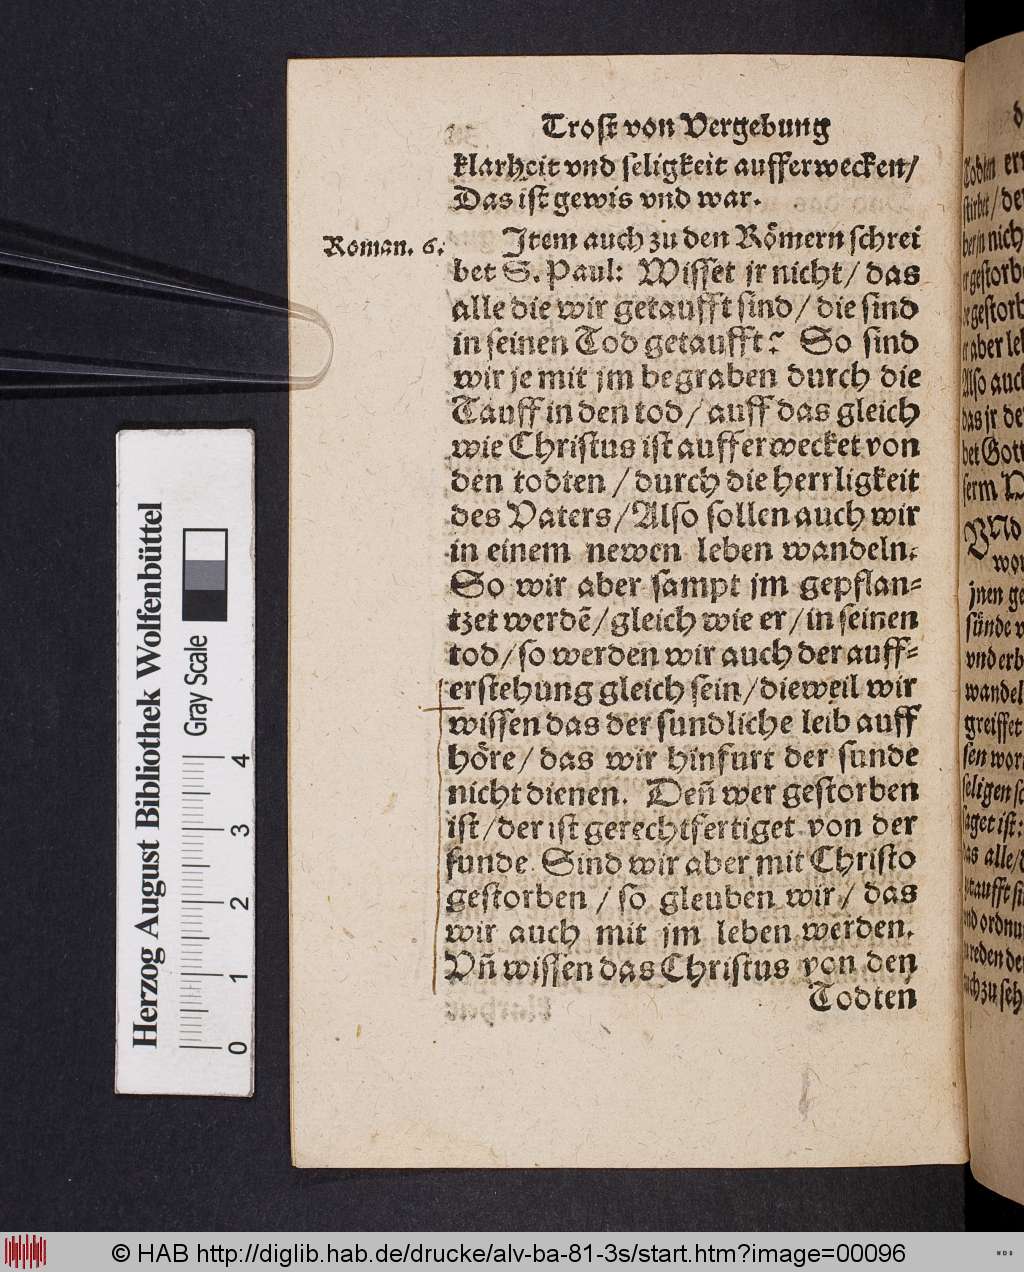 Trost von Vergebung
klarheit vnd seligkeit aufferwecken/
Das ist gewis vnd war.
Roman. 6.
Item auch zu den Römern schrei
bet S. Paul: Wisset jr nicht/ das
alle die wir getaufft sind/ die sind
in seinen Tod getaufft? So sind
wir je mit jm begraben durch die
Tauff in den tod/ auff das gleich
wie Christus ist aufferwecket von
den todten/ durch die herrligkeit
des Vaters/ Also sollen auch wir
in einem newen leben wandeln.
So wir aber sampt jm gepflan-
tzet werdē/ gleich wie er/ in seinen
tod/ so werden wir auch der auff-
erstehung gleich sein/ dieweil wir
wissen das der sundliche leib auff
höre/ das wir hinfurt der sunde
nicht dienen. Deñ wer gestorben
ist/ der ist gerechtfertiget von der
sunde. Sind wir aber mit Christo
gestorben/ so gleuben wir/ das
wir auch mit jm leben werden.
Vñ wissen das Christus von den
Todten
Herzog August Bibliothek Wolfenbüttel
Gray Scale
0 1 2 3 4
© HAB http://diglib.hab.de/drucke/alv-ba-81-3s/start.htm?image=00096